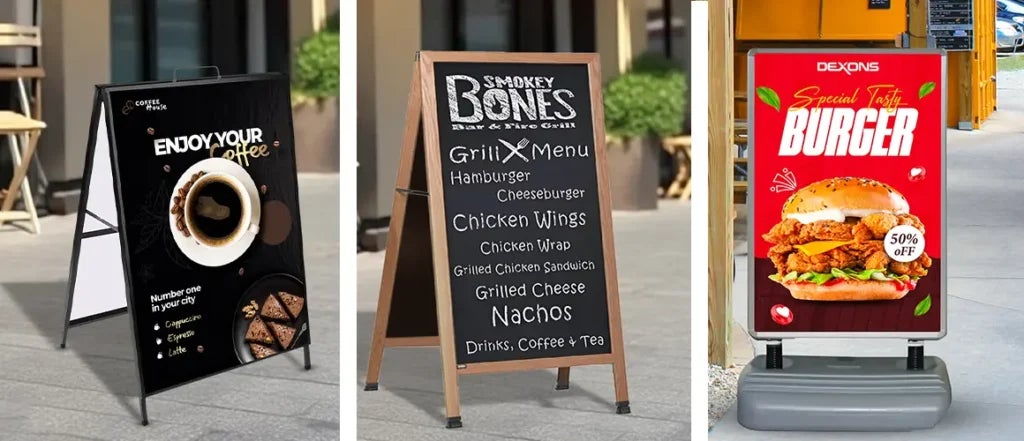 COFFEE
House
ENJOY YOUR
Coffee
Number one
in your city
Cappuccino
Espresso
Latte
SMOKEY
BONES
Bar & Fire Grill
Grill Menu
Hamburger
Cheeseburger
Chicken Wings
Chicken Wrap
Grilled Chicken Sandwich
Grilled Cheese
Nachos
Drinks, Coffee & Tea
DEXONS
Special Tasty
BURGER
50%
oFF